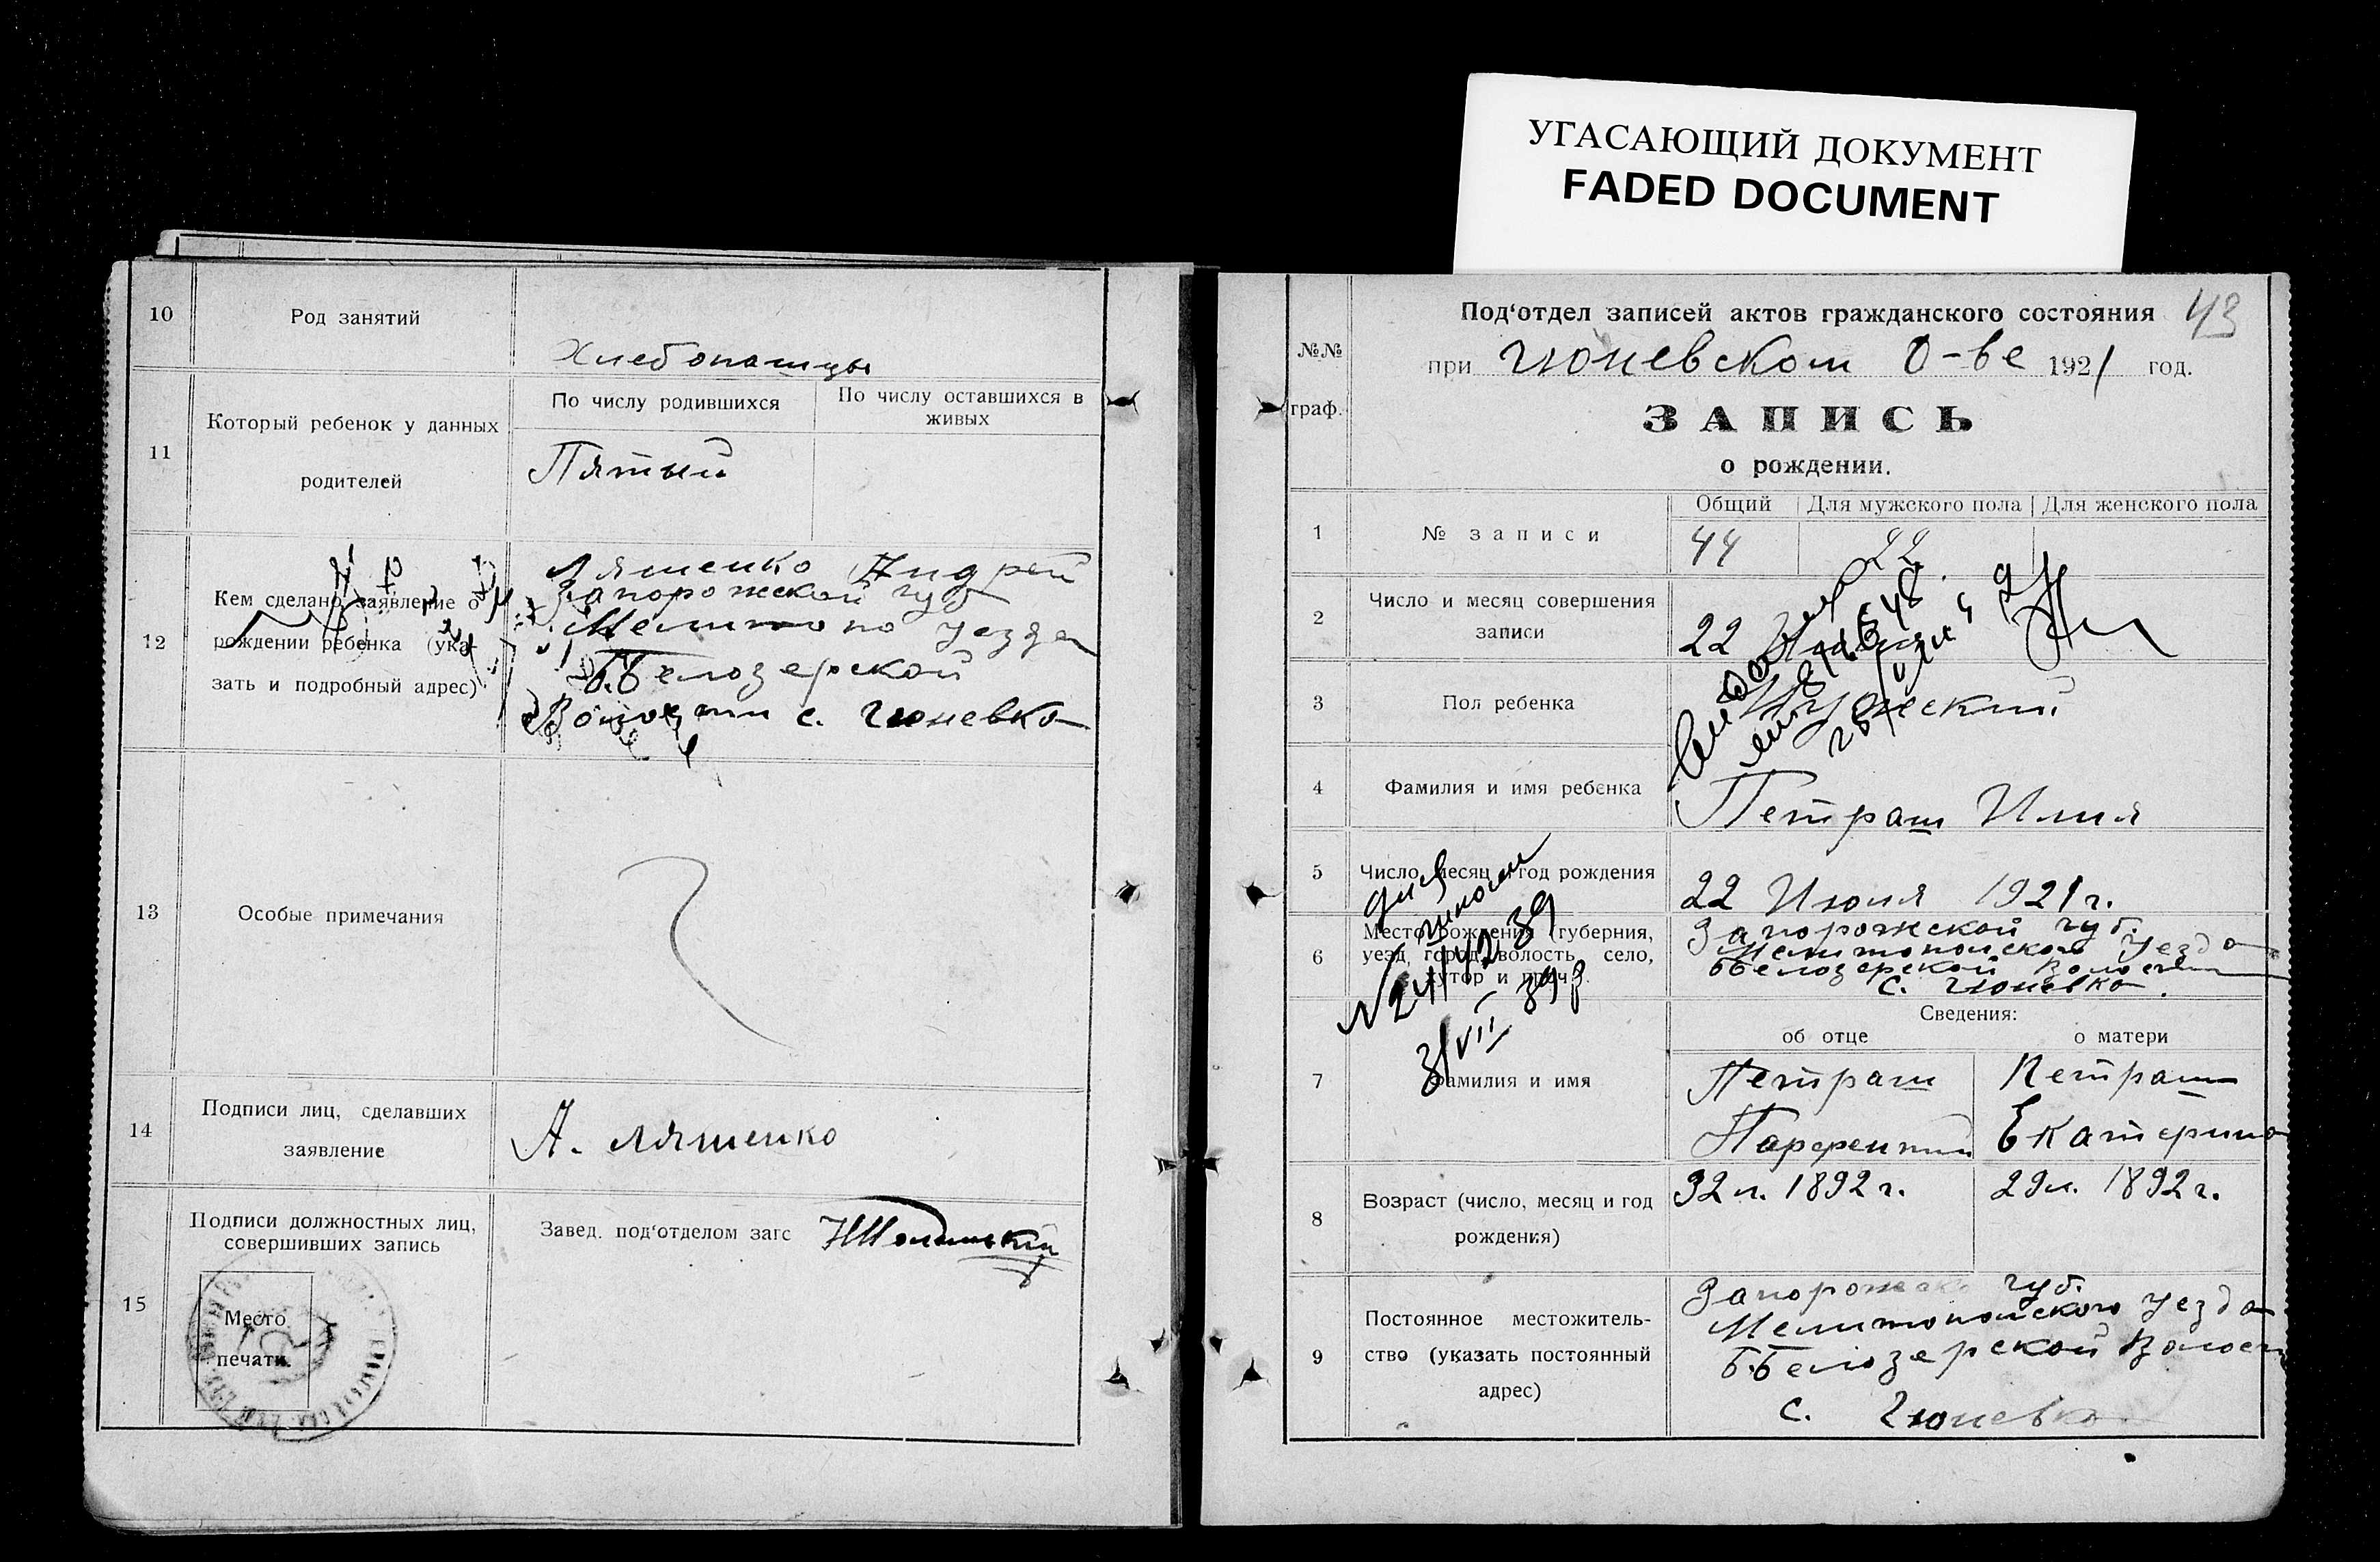 УГАСАЮЩИЙ ДОКУМЕНТ
FADED DOCUMENT
10
Род занятий
Хлебопашцы
11
Который ребенок у данных
родителей
По числу родившихся
По числу оставшихся в
живых
Пятый
12
Кем сделано заявление о
рождении ребенка (ука-
зать и подробный адрес)
Ляшенко Андрей
Запорожской губ
Мелитопо уезда
Б. Белозерской
Волости с. Гюневко
13
Особые примечания
14
Подписи лиц, сделавших
заявление
А. Ляшенко
15
Подписи должностных лиц,
совершивших запись
Завед. под‘отделом загс
Место
печати.
43
№№
граф.
Под‘отдел записей актов гражданского состояния
при Гюневском О-ве 1921 год.
ЗАПИСЬ
о рождении.
1
№ записи
Общий
Для мужского пола
Для женского пола
44
22
2
Число и месяц совершения
записи
22
3
Пол ребенка
Мужский
4
Фамилия и имя ребенка
Петраш Илия
5
Число, месяц и год рождения
22 Июня 1921 г.
6
Место рождения (губерния,
уезд, город, волость, село,
хутор и проч.).
Запорожской губ.
Мелитопольского уезда
Б Белозерской Волости
с. Гюневко.
Сведения:
об отце
о матери
7
Фамилия и имя
Петраш
Парфентий
Петраш
Екатерина
8
Возраст (число, месяц и год
рождения)
32 л. 1892 г.
29 л. 1892 г.
9
Постоянное местожитель-
ство (указать постоянный
адрес)
Запорожской губ.
Мелитопольского уезда
Б. Белозерской Волости
с. Гюневко